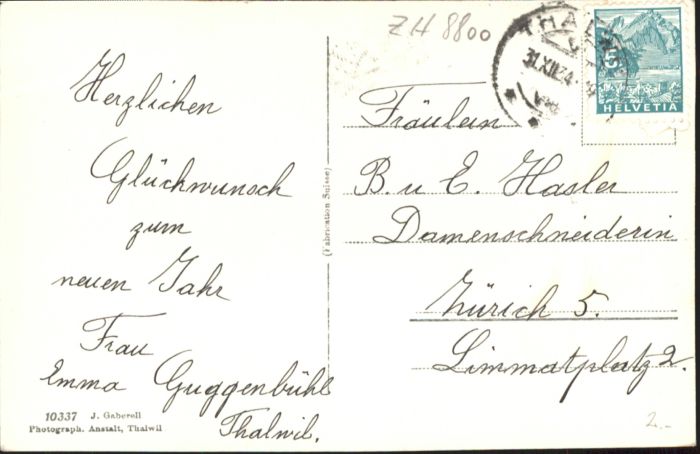 Herzlichen
Glückwunsch
zum
neuen Jahr
Frau
Emma Guggenbühl
Thalwil.
10337 J. Gaberell
Photograph. Anstalt, Thalwil
(Fabrication Suisse)
ZH 8800
THALWIL
31.XII.34
5
HELVETIA
Fräulein
B. u E. Hasler
Damenschneiderin
Zürich 5.
Limmatplatz 2.
2.-